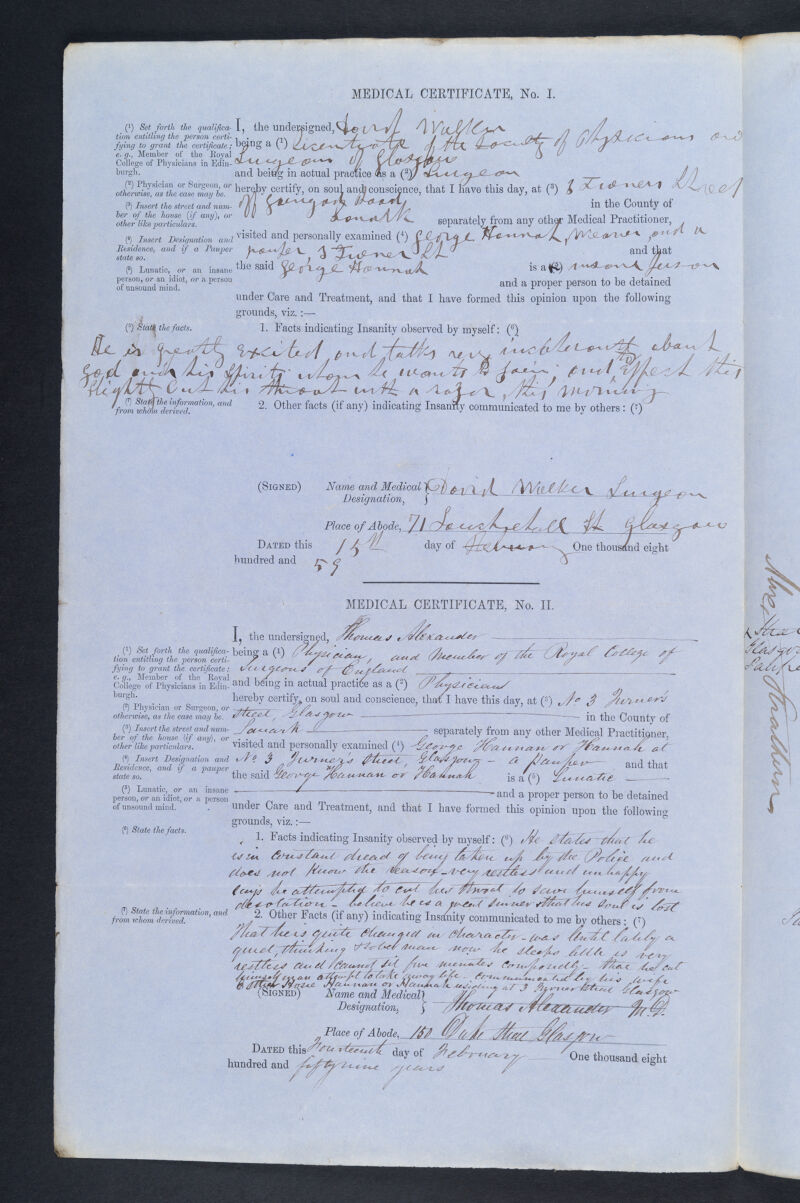 MEDICAL CERTIFICATE, No. I.
(¹) Set forth the qualifica-
tion entitling the person certi-
fying to grant the certificate;
e. g., Member of the Royal
College of Physicians in Edin-
burgh.
(²) Physician or Surgeon, or
otherwise, as the case may be.
(³) Insert the street and num-
ber of the house (if any), or
other like particulars.
(⁴) Insert Designation and
Residence, and if a Pauper
state so.
(⁵) Lunatic, or an insane
person, or an idiot, or a person
of unsound mind.
(⁶) State the facts.
(⁷) State the information, and
from whom derived.
I, the undersigned, David Walker
being a (¹) Licentiate of the Faculty of Physicians and
Surgeons of Glasgow
and being in actual practice as a (²) Surgeon
hereby certify, on soul and conscience, that I have this day, at (³) 3 Turners Street
off Garngad Road, in the County of
Lanark separately from any other Medical Practitioner,
visited and personally examined (⁴) George Hannah, Weaver and a
pauper, 3 Turner St and that
the said George Hannah is a (⁵) insane person
and a proper person to be detained
under Care and Treatment, and that I have formed this opinion upon the following
grounds, viz.:—
1. Facts indicating Insanity observed by myself: (⁶)
He is greatly excited and talks very incoherently about
God and his spirits whom he wants to join, and to effect this
slightly cut his throat with a razor, this morning
2. Other facts (if any) indicating Insanity communicated to me by others: (⁷)
(SIGNED) Name and Medical Designation, David Walker Surgeon
Place of Abode, 71 St Glasgow
DATED this 15th day of February One thousand eight
hundred and 59
MEDICAL CERTIFICATE, No. II.
(¹) Set forth the qualifica-
tion entitling the person certi-
fying to grant the certificate;
e. g., Member of the Royal
College of Physicians in Edin-
burgh.
(²) Physician or Surgeon, or
otherwise, as the case may be.
(³) Insert the street and num-
ber of the house (if any), or
other like particulars.
(⁴) Insert Designation and
Residence, and if a pauper
state so.
(⁵) Lunatic, or an insane
person, or an idiot, or a person
of unsound mind.
(⁶) State the facts.
(⁷) State the information, and
from whom derived.
I, the undersigned, Thomas Alexander
being a (¹) Physician, and Member of the Royal College of
Surgeons of England
and being in actual practice as a (²) Physician
hereby certify, on soul and conscience, that I have this day, at (³) No 3 Turner's
Street, Glasgow in the County of
Lanark separately from any other Medical Practitioner,
visited and personally examined (⁴) George Hannan or Hannah at
No 3 Turner's Street, Glasgow - a pauper and that
the said George Hannan or Hannah is a (⁵) Lunatic
and a proper person to be detained
under Care and Treatment, and that I have formed this opinion upon the following
grounds, viz.:—
1. Facts indicating Insanity observed by myself: (⁶) He states that he
is in constant dread of being taken up by the Police and
does not know the reason - very restless and unhappy
says he attempted to cut his throat to save himself from
desolation - believes he is a great sinner & that his soul is lost
2. Other Facts (if any) indicating Insanity communicated to me by others: (⁷)
That he is quite changed in character - was until lately a
quiet, thinking & sober man now he sleeps little is very
restless and cannot sit five minutes composedly - that he cut
himself in an attempt to take away life - communicated by his wife
Hannan or Hannah residing at 3 Turner Street Glasgow
(SIGNED) Name and Medical Designation, Thomas Alexander M.D.
Place of Abode, 150 Duke Street Glasgow
DATED this Fourteenth day of February One thousand eight
hundred and fifty nine years